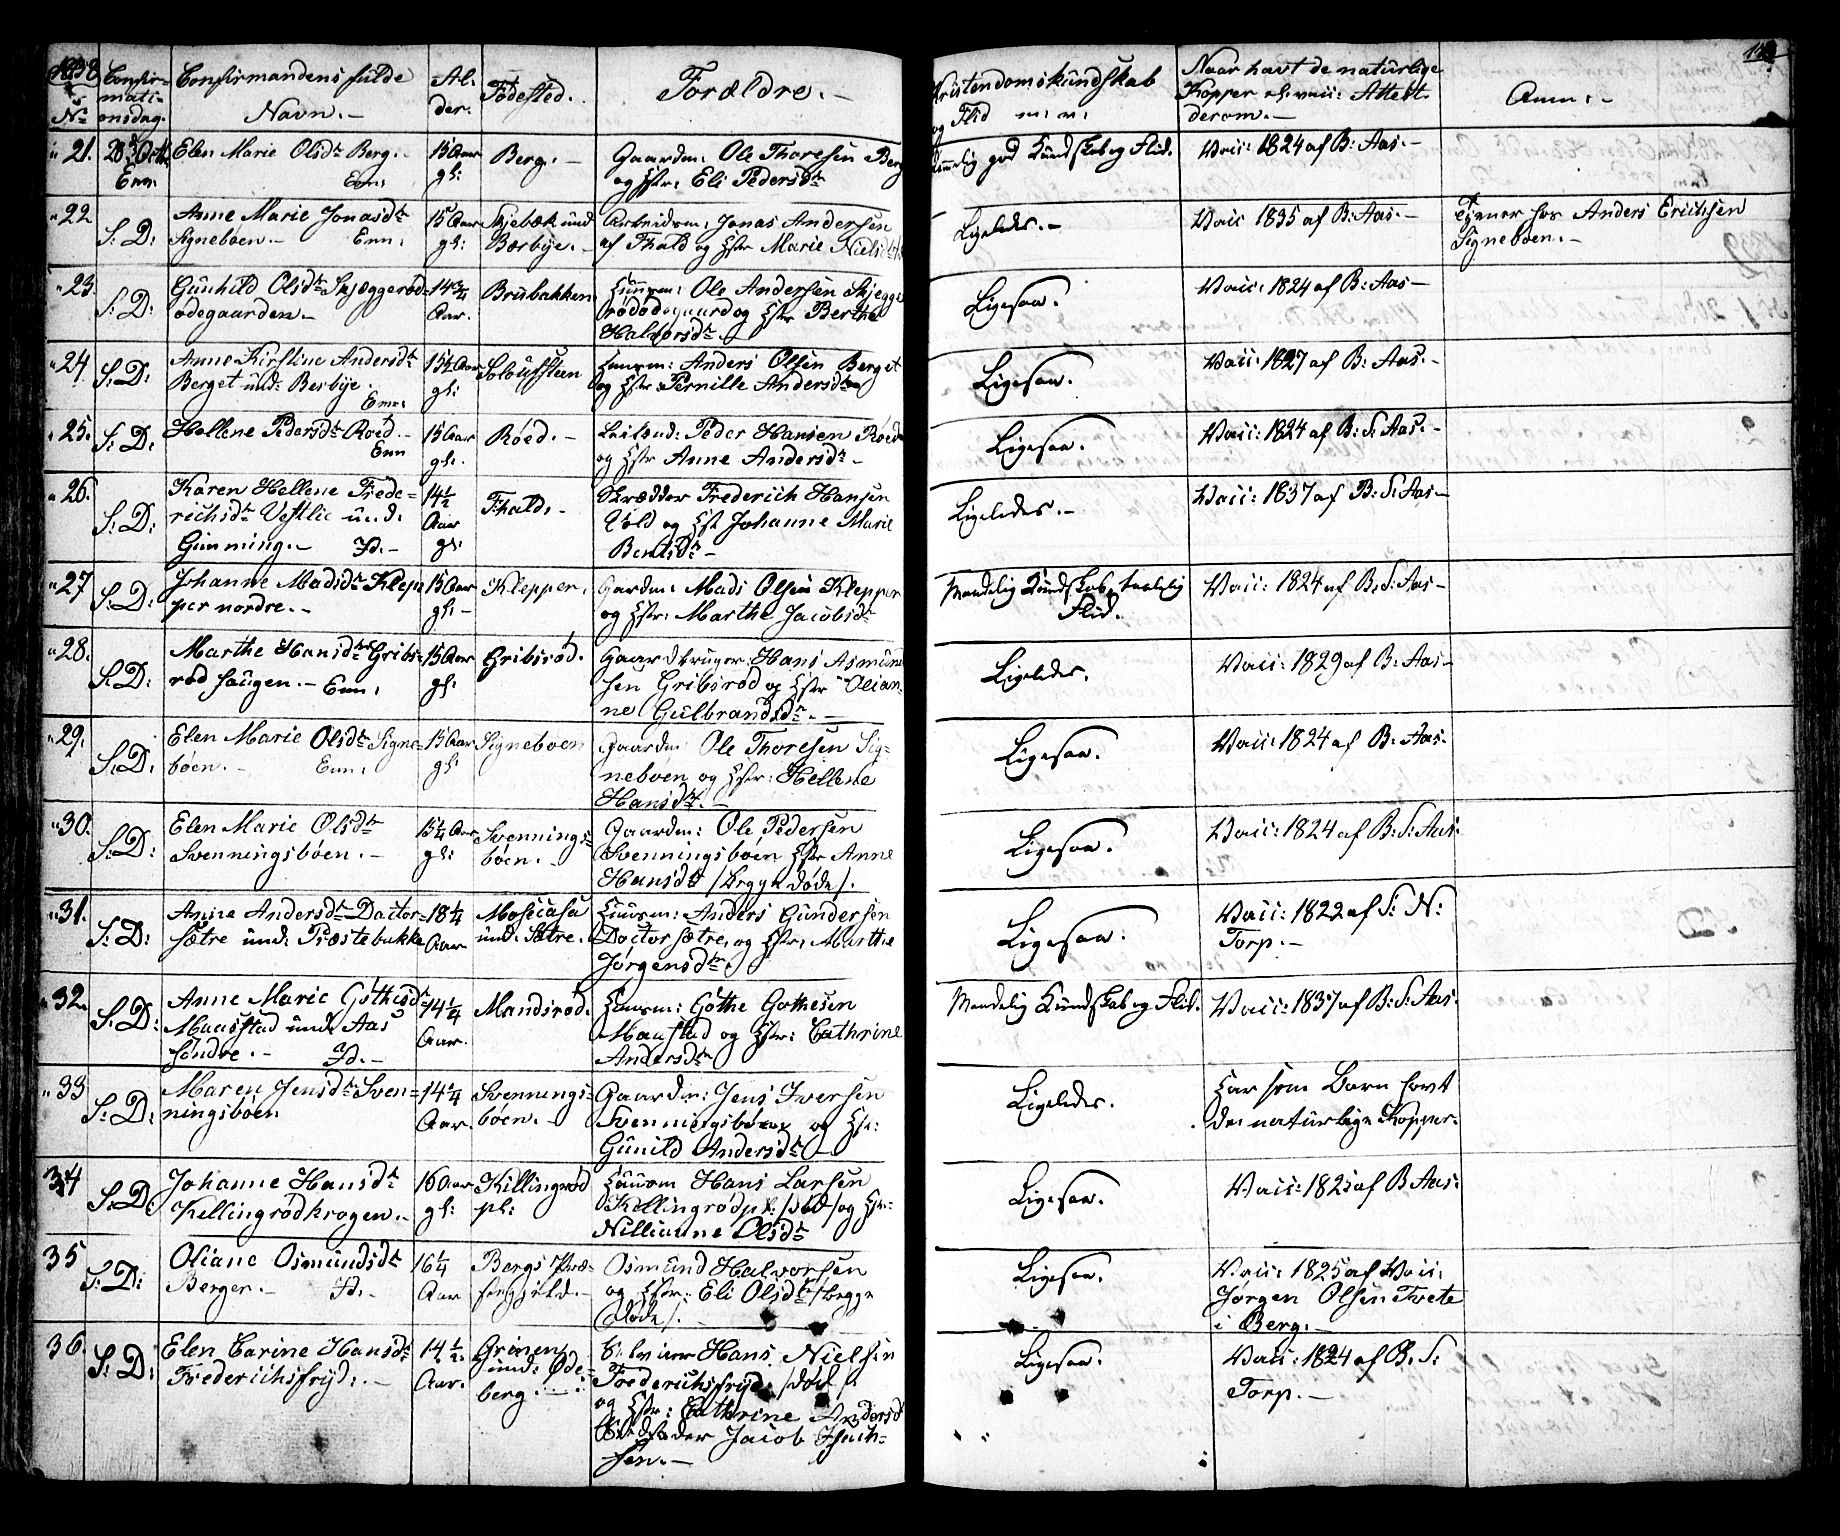 1838
No
Confir-
mati-
onsdag.
Confirmandens fulde
Navn.-
Al-
der.
Fødested.
Forældre.-
Kristendomskundskab
og Flid m: v:
Naar havt de naturlige
Kopper el. vacc: Attest.
derom.-
Anm:-
21. 28de Octb
Enn:
Elen Marie Olsdtr Berg.-
Enn:
15 Aar
gl:
Berg.-
Gaardm: Ole Thoresen Berg
og Hstr: Eli Pedersdtr
god Kundskab og Flid.
Vacc: 1824 af B: Aas.-
22
S: D:
Anne Marie Jonasdtr
Signebøen.- Enn:
15 Aar
gl:
Skjebæk und
Berbye.-
Arbeidsm: Jonas Andersen
af Fhald og Hstr Marie Nielsdtr
Ligeledes.-
Vacc 1835 af B: Aas.-
Tjener hos Anders Erichsen
Signebøen.-
23.
S: D:
Gunhild Olsdtr Skjæggerød
ødegaarden.-
14 3/4
Aar.
Brubakken
Huusm: Ole Andersen Skjegge
rødødegaard og Hstr Berthe
Halvorsdtr.
Ligesaa.
Vacc: 1824 af B: Aas-
24.
S: D:
Anne Kirstine Andersdtr
Berget und: Berbye.
Enn:
15 1/2 Aar
gl:
Huusm: Anders Olsen Berget
og Hstr: Pernille Andersdtr
Ligesaa.
Vacc: 1827 af B: Aas.-
25.
S: D:
Hellene Pedersdtr Røed.-
Enn
15 Aar
gl:
Røed.-
Leilend: Peder Hansen Røed
og Hstr Anne Andersdtr-
Ligesaa.
Vacc: 1824 af B: S: Aas.-
26.
S: D:
Karen Hellene Frede-
richsdtr Vestlie und:
Gimming.- Id.-
14 1/2
Aar
gl:
Fhald.-
Skrædder Frederich Hansen
Vold og Hst Johanne Marie
Bentsdtr-
Ligeledes.-
Vacc: 1837 af B: S: Aas-
27
S: D:
Johanne Madsdtr Klep-
per nordre.-
15 Aar
gl:-
Klepper.
Gardm: Mads Olsen Klepper
og Hstr: Marthe Jacobsdtr
Maadelig Kundskab, taalelig
Flid.
Vacc: 1824 af B. S: Aas-
28.
S: D:
Marthe Hansdtr Gribs-
rød haugen.- Enn:
15 Aar
gl:
Gribsrød.
Gaardbruger Hans Asmund
sen Gribsrød og Hstr Olian-
ne Gulbrandsdtr.-
Ligeledes.
Vacc: 1829 af B: Aas-
29.
S: D:
Elen Marie Olsdtr Signe-
bøen.- Enn:
15 Aar
gl:
Signebøen
Gaardm: Ole Thoresen Sig-
nebøen og Hstr: Hellene
Hansdtr.-
Ligesaa.
Vacc: 1824 af B: Aas.
30.
S: D:
Elen Marie Olsdtr
Svenningsbøen.-
15 1/4 Aar
gl:
Svennings-
bøen.-
Gaardm: Ole Pedersen
Svenningsbøen Hstr Anne
Hansdtr /begge døde/.
Ligesaa.
Vacc: 1824 af B: S: Aas.
31.
S: D:
Anne Andersdtr Doctor-
sætre und: Præstebakke
18 1/4
Aar
und: Sætre.
Huusm: Anders Gundersen
Doctorsætre, og Hstr: Marthe
Jørgensdtr
Ligesaa.
Vacc: 1822 af S: N:
Torp.-
32
S: D:
Anne Marie Gøthesdtr
Maastad und Aas
søndre.- Id.-
14 1/4
Aar.
Mandsrød.
Huusm: Gøthe Gøthesen
Maastad og Hstr: Cathrine
Andersdtr
Maadelig Kundskab og Flid.
Vacc: 1837 af B: S: Aas.
33
S: D:
Maren Jensdtr Sven-
ningsbøen
14 1/4
Aar.
Svennings-
bøen.-
Gaardm: Jens Iversen
Svenningsbøen og Hst:
Gunild Andersdtr-
Ligeledes.
Har som Barn havt
de naturlige Kopper.
34
S: D:
Johanne Hansdtr
Killingrødkrogen.-
16 Aar
gl:
Killingrød
pl:
Huusm Hans Larsen
Killingrødpl: /død/ og Hstr:
Nillianne Olsdtr
Ligesaa.
Vacc: 1825 af B Aas.
35
S: D:
Oliane Osmundsdtr
Berger.- Id.-
16 1/4
Aar
Bergs Præ-
stegjeld.-
Osmund Halvorsen
og Hstr: Eli Olsdtr /begge
døde/.-
Ligesaa.
Vacc: 1825 af Vacc:
Jørgen Olsen Tvete
i Berg.-
36.
S: D:
Elen Carine Hansdtr
Frederichsfryd.-
14 1/2
Aar.
Grinen
und: Øde-
berg.-
Hans Nielsen
Frederichsfryd /død/
og Hstr: Cathrine Andersd
Jacob Isach-
sen.-
Ligesaa.
Vacc: 1824 af B. S:
Torp.-